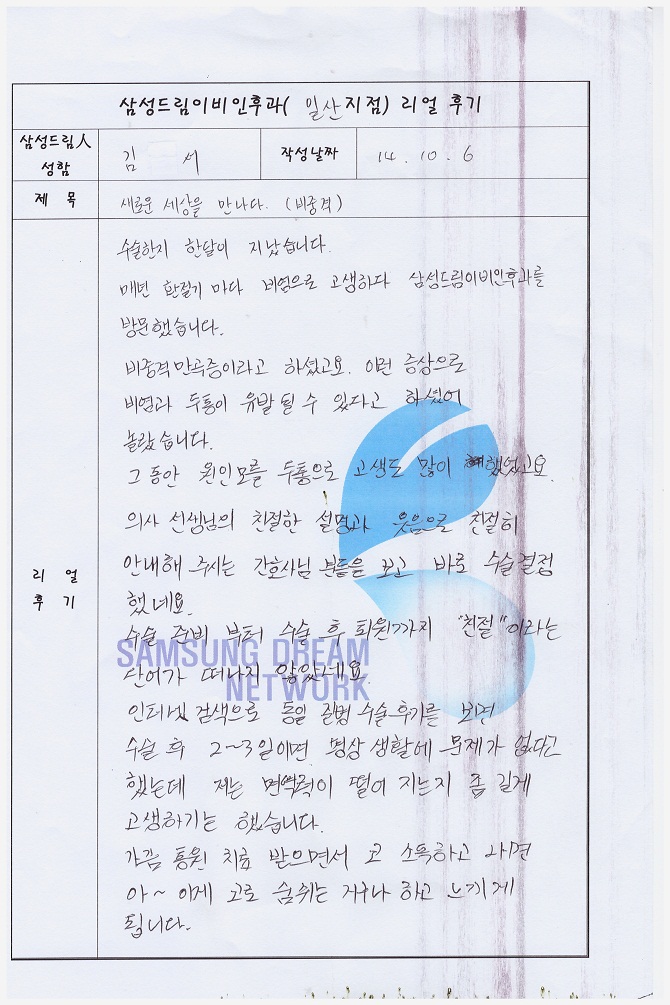 삼성드림이비인후과( 일산지점) 리얼 후기
삼성드림人 성함
김 서
작성날짜
14. 10. 6
제 목
새로운 세상을 만나다. (비중격)
리 얼 후 기
수술한지 한달이 지났습니다.
매년 환절기 마다 비염으로 고생하다 삼성드림이비인후과를
방문했습니다.
비중격만곡증이라고 하셨고요. 이런 증상으로
비염과 두통이 유발 될 수 있다고 하셨어
놀랐습니다.
그 동안 원인모를 두통으로 고생도 많이 했었고요.
의사 선생님의 친절한 설명과 웃음으로 친절히
안내해 주시는 간호사님 분들을 보고 바로 수술결정
했네요.
수술 준비 부터 수술 후 퇴원까지 "친절"이라는
단어가 떠나지 않았네요.
인터넷 검색으로 동일 질병 수술후기를 보면
수술 후 2~3일이면 평상 생활에 문제가 없다고
했는데 저는 면역력이 떨어 지는지 좀 길게
고생하기는 했습니다.
가끔 통원 치료 받으면서 코 소독하고 나면
아~ 이게 코로 숨쉬는 거구나 하고 느끼게
됩니다.
SAMSUNG DREAM
NETWORK